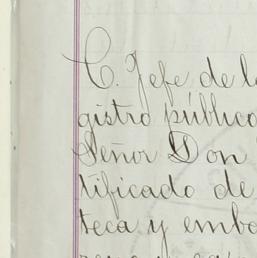 C. Jefe de l
gistro público
Señor Don
tificado de
teca y emb